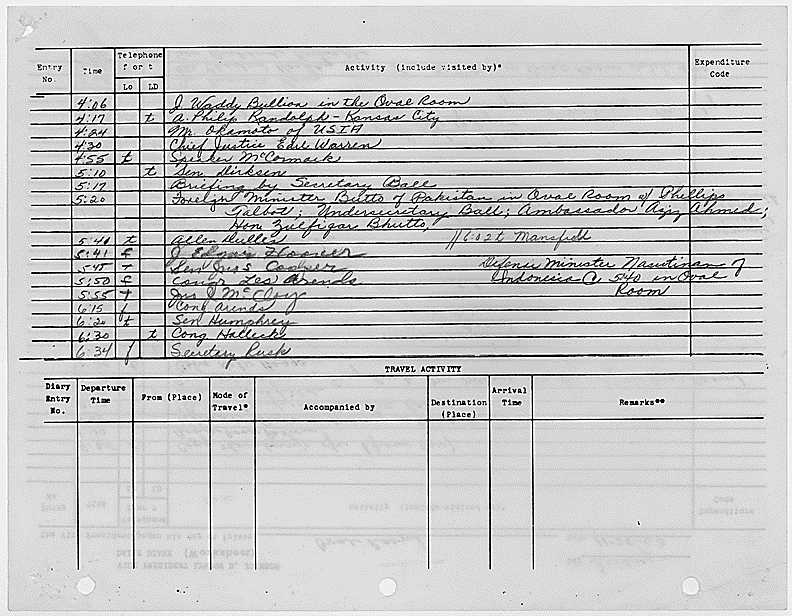 Entry No.
Time
Telephone f or t
Lo LD
Activity (include visited by)*
Expenditure Code
4:06 J. Waddy Bullion in the Oval Room
4:17 t A. Philip Randolph - Kansas City
4:24 Mr. Okamoto of USIA
4:30 Chief Justice Earl Warren
4:55 t Speaker McCormack
5:10 t Sen. Dirksen
5:17 Briefing by Secretary Ball
5:20 Foreign Minister Butto of Pakistan in Oval Room w/ Phillips
Talbot; Undersecretary Ball; Ambassador Aziz Ahmed;
Hon. Zulfigar Bhutto,
5:40 t Allen Dulles // 6:02 t Mansfield
5:41 f J Edgar Hoover
5:45 t Sen Jno S Cooper Defense Minister Nasutinan of
5:50 f Congr Les Arends Indonesia @ 540 in Oval
5:55 t Jno J McCloy Room
6:15 f Cong Arends
6:20 t Sen Humphrey
6:30 t Cong Halleck
6:34 f Secretary Rusk
TRAVEL ACTIVITY
Diary Entry No.
Departure Time
From (Place)
Mode of Travel*
Accompanied by
Destination (Place)
Arrival Time
Remarks**